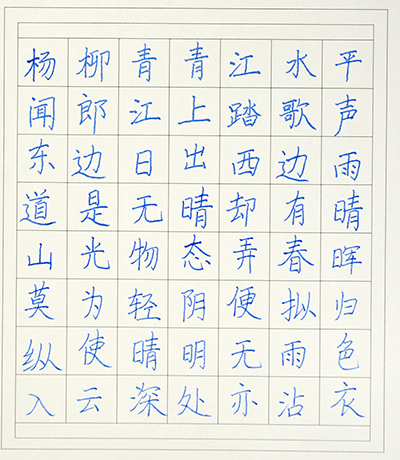 杨柳青青江水平
闻郎江上踏歌声
东边日出西边雨
道是无晴却有晴
山光物态弄春晖
莫为轻阴便拟归
纵使晴明无雨色
入云深处亦沾衣